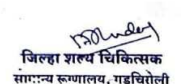 जिल्हा शल्य चिकित्सक
सामान्य रूग्णालय, गडचिरोली